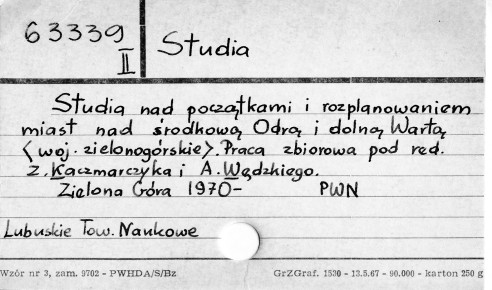 63339
II
Studia
Studia nad początkami i rozplanowaniem
miast nad środkową Odrą i dolną Wartą
<woj. zielonogórskie>. Praca zbiorowa pod red.
Z. Kaczmarczyka i A. Wędzkiego.
Zielona Góra 1970- PWN
Lubuskie Tow. Naukowe
Wzór nr 3, zam. 9702 - PWHDA/S/Bz GrZGraf. 1330 - 13.5.67 - 90.000 - karton 250 g